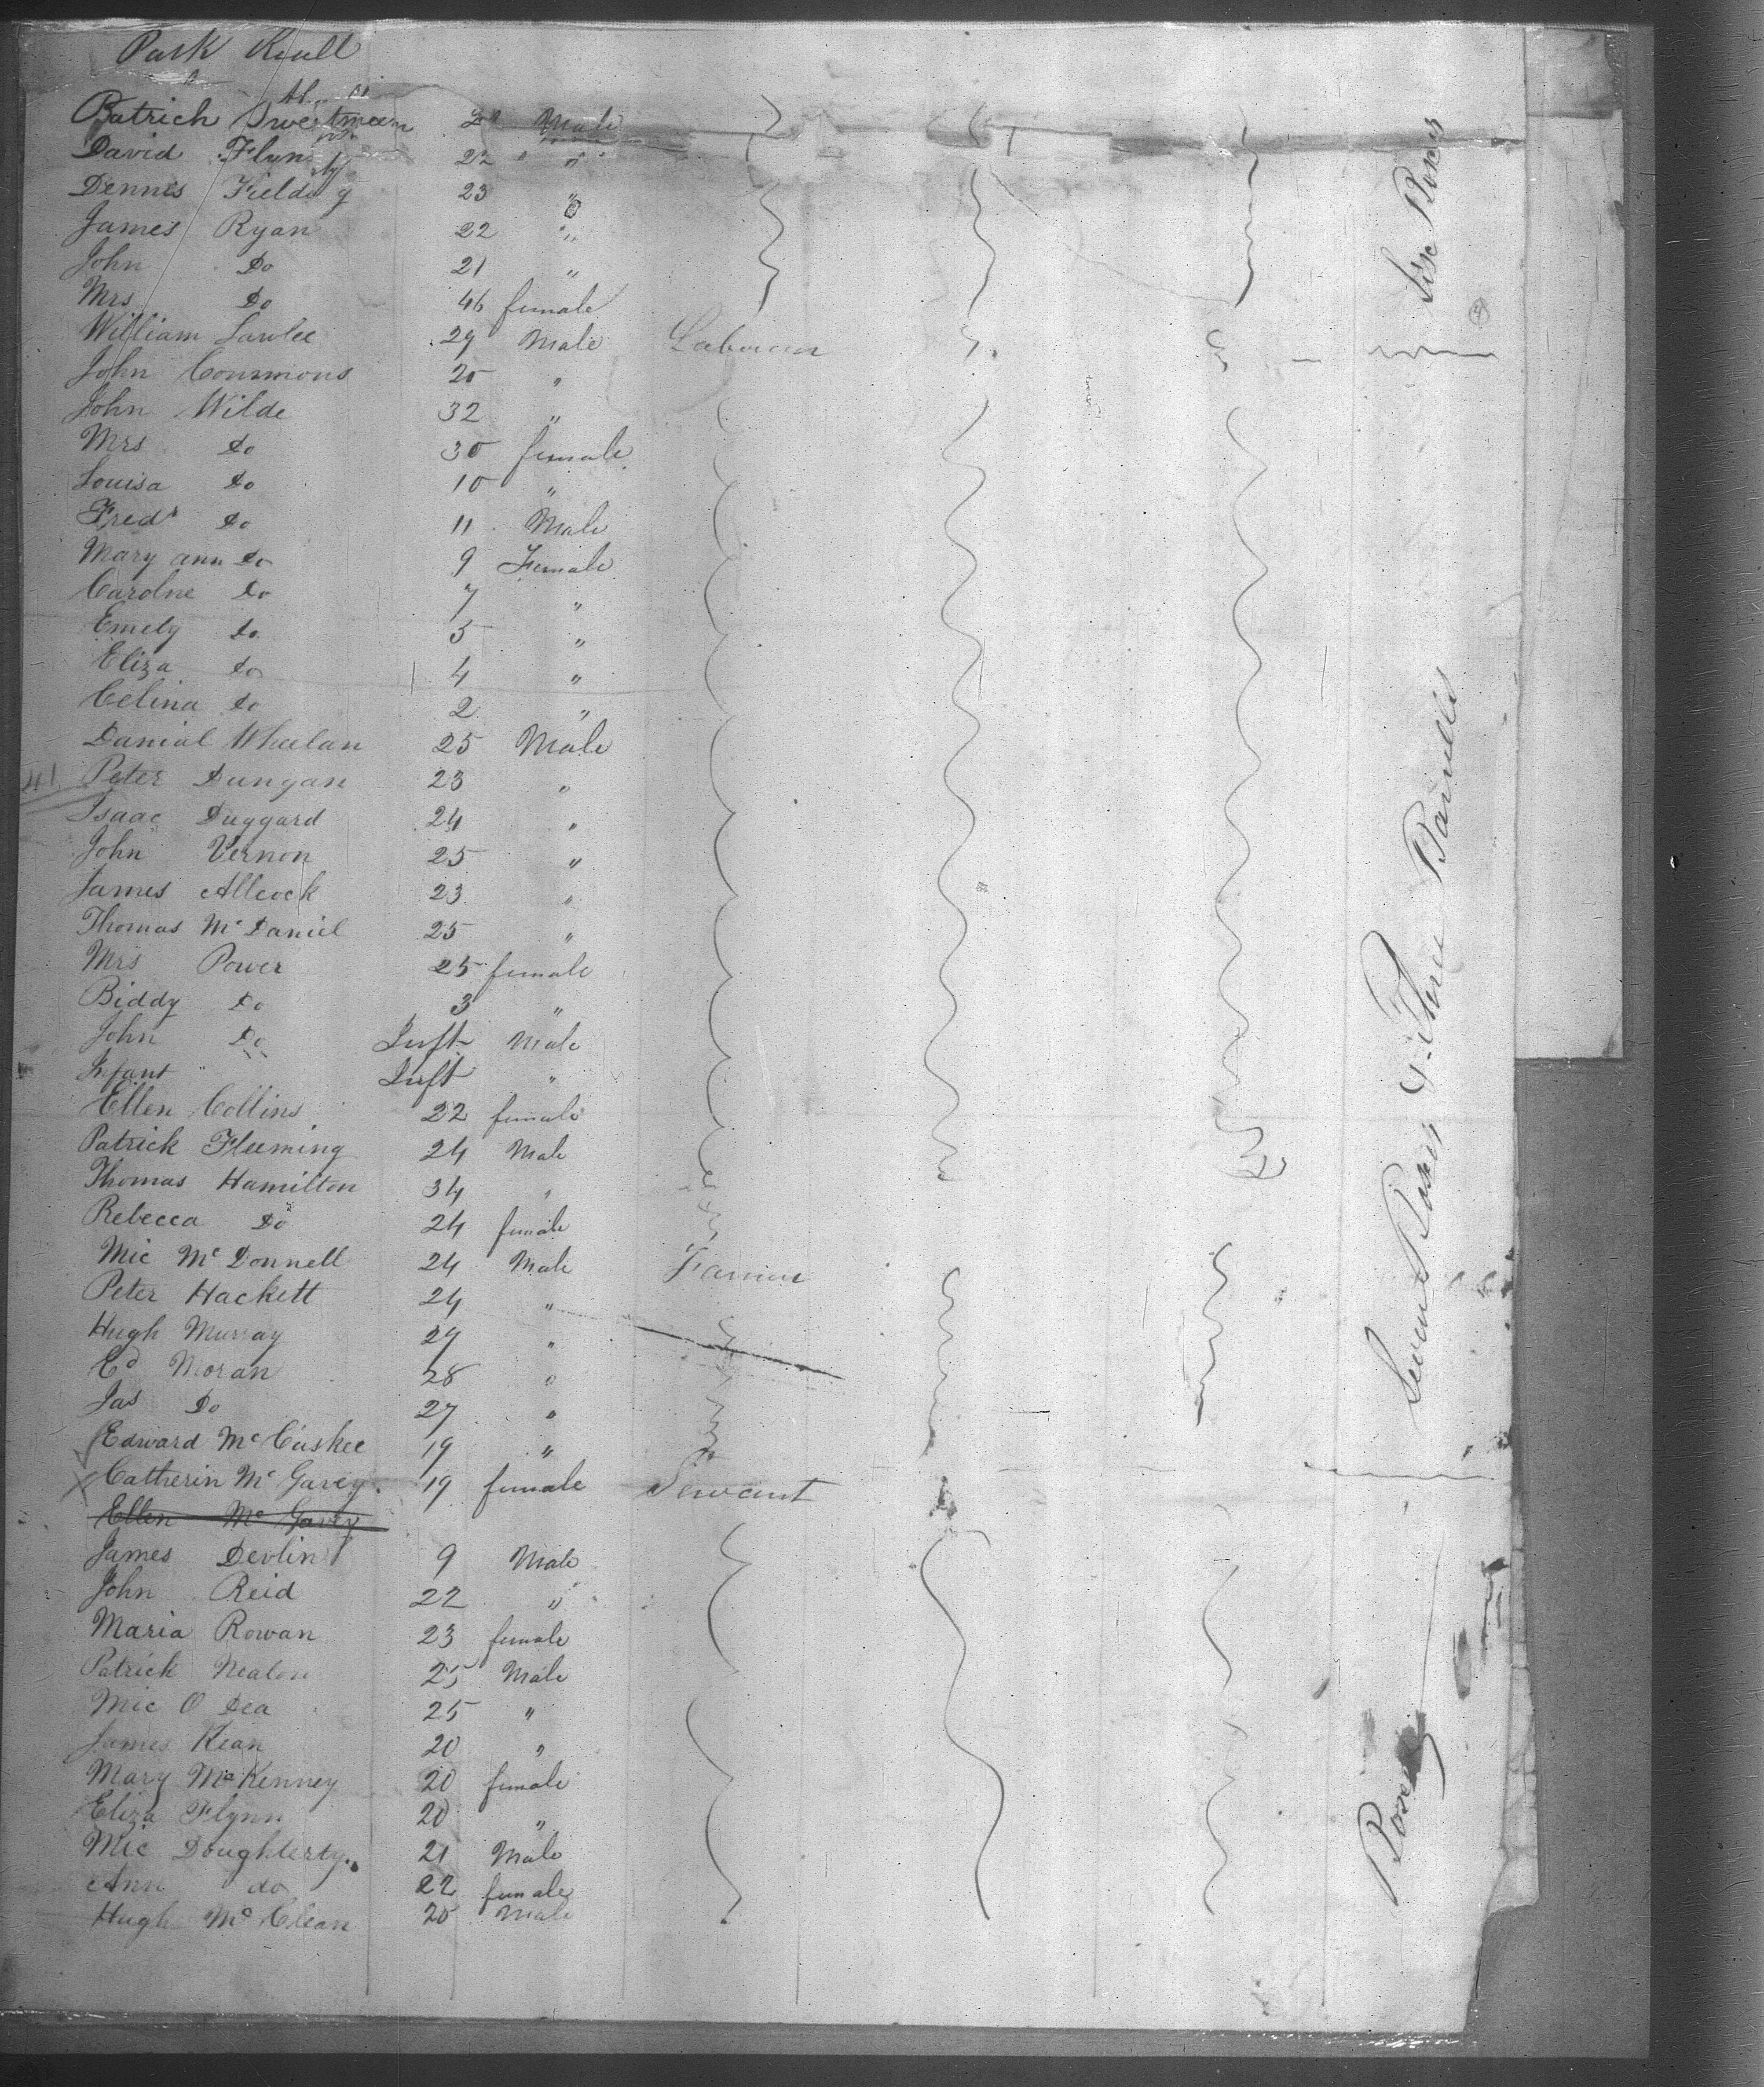 Park
Patrick Sweetman Male
David Flynn 22 " "
Dennis Fielding 23 "
James Ryan 22 "
John Do 21 "
Mrs Do 46 female
William Lawlee 29 Male Labourer
John Commons 25 "
John Wilde 32 "
Mrs Do 30 female
Louisa Do 10 "
Fredk Do 11 Male
Mary ann Do 9 Female
Carolne Do 7 "
Emely Do 5 "
Eliza Do 4 "
Celina Do 2 "
Danial Wheelan 25 Male
Peter Dungan 23 "
Isaac Duggard 24 "
John Vernon 25 "
James Allcock 23 "
Thomas Mc Daniel 25 "
Mrs Power 25 female
Biddy Do 3 "
John Do Inft Male
Infant " Inft "
Ellen Collins 22 female
Patrick Fleeming 24 Male
Thomas Hamilton 34 "
Rebecca Do 24 female
Mic Mc Donnell 24 Male Farmer
Peter Hackett 24 "
Hugh Murray 27 "
Ed Moran 28 "
Jas Do 27 "
Edward Mc Cuskee 19 "
Catherin Mc Garey 19 female Servant
Ellen Mc Garey
James Devlin 9 Male
John Reid 22 "
Maria Rowan 23 female
Patrick Nealon 25 Male
Mic O Dea 25 "
James Kean 20 "
Mary Mc Kenney 20 female
Eliza Flynn 20 "
Mic Doughterty 21 Male
Ann do 22 female
Hugh Mc Clean 20 Male
Six Boxes
Seven Boxes & Three Barrells
Boxes